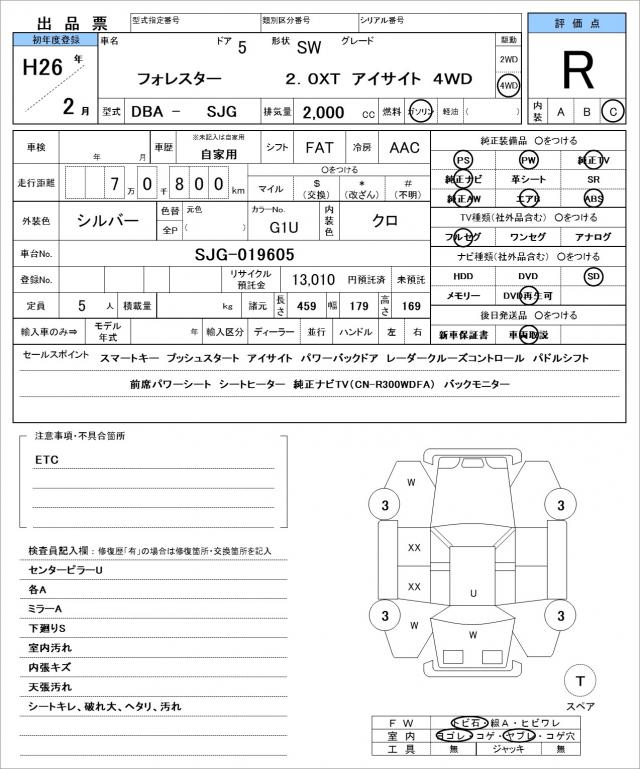 出品票 型式指定番号 類別区分番号 シリアル番号 評価点
初年度登録 車名 ドア 5 形状 SW グレード 駆動
H26 年 フォレスター 2.0XT アイサイト 4WD 2WD R
4WD
2 月 型式 DBA - SJG 排気量 2,000 cc 燃料 ガソリン 軽油 ( ) 内装 A B C
車検 年 月 車歴 ※未記入は自家用 自家用 シフト FAT 冷房 AAC 純正装備品 〇をつける
PS PW 純正TV
走行距離 7 万 0 千 8 0 0 km 〇をつける
マイル $ (交換) * (改ざん) # (不明) 純正ナビ 革シート SR
純正AW エアB ABS
外装色 シルバー 色替 元色 カラーNo. 内装色 クロ TV種類(社外品含む) 〇をつける
全P ( ) G1U フルセグ ワンセグ アナログ
車台No. SJG-019605 ナビ種類(社外品含む) 〇をつける
登録No. リサイクル預託金 13,010 円預託済 未預託 HDD DVD SD
定員 5 人 積載量 kg 諸元 長さ 459 幅 179 高さ 169 メモリー DVD再生可
後日発送品 〇をつける
輸入車のみ⇒ モデル年式 年 輸入区分 ディーラー 並行 ハンドル 左 右 新車保証書 車両取説
セールスポイント スマートキー プッシュスタート アイサイト パワーバックドア レーダークルーズコントロール パドルシフト
前席パワーシート シートヒーター 純正ナビTV(CN-R300WDFA) バックモニター
注意事項・不具合箇所
ETC
検査員記入欄：修復歴「有」の場合は修復箇所・交換箇所を記入
センターピラーU
各A
ミラーA
下廻りS
室内汚れ
内張キズ
天張汚れ
シートキレ、破れ大、ヘタリ、汚れ
W
3 3
XX
XX
U
3 W 3
W
T
スペア
FW トビ石・線A・ヒビワレ
室内 ヨゴレ・コゲ・ヤブレ・コゲ穴
工具 無 ジャッキ 無